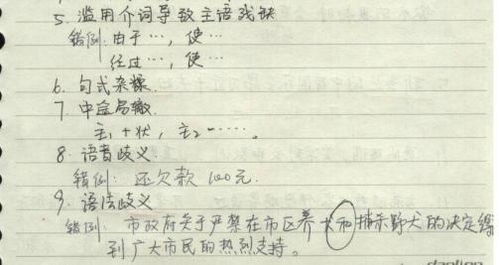 5. 滥用介词导致主语残缺
错例: 由于…, 使…
经过…, 使…
6. 句式杂糅.
7. 中途易辙.
主₁ + 状, 主₂ ……。
8. 语音歧义.
错例: 还欠款 100元.
9. 语法歧义
错例: 市政府关于严禁在市区养犬和捕杀野犬的决定得
到广大市民的热烈支持。